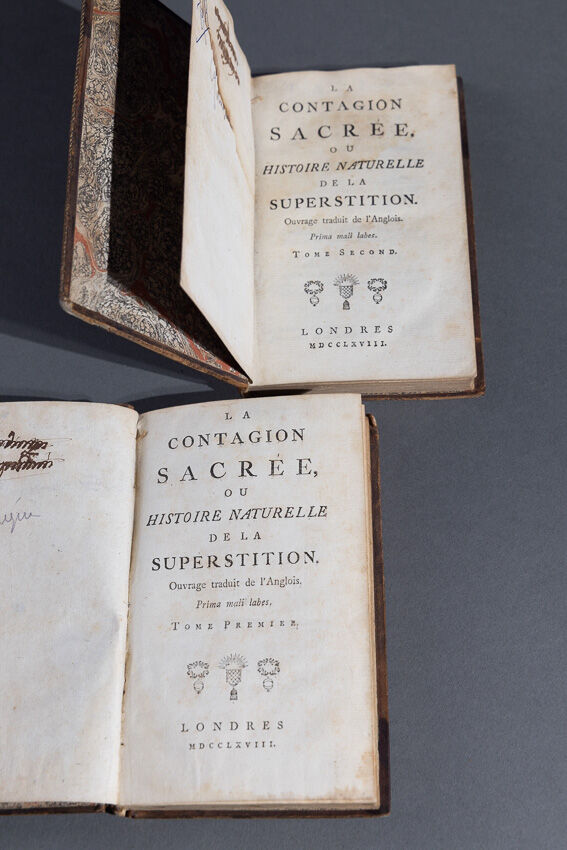 LA
CONTAGION
SACRÉE,
OU
HISTOIRE NATURELLE
DE LA
SUPERSTITION.
Ouvrage traduit de l'Anglois.
Prima mali labes.
TOME SECOND.
LONDRES
MDCCLXVIII.
LA
CONTAGION
SACRÉE,
OU
HISTOIRE NATURELLE
DE LA
SUPERSTITION.
Ouvrage traduit de l'Anglois.
Prima mali labes.
TOME PREMIER.
LONDRES
MDCCLXVIII.